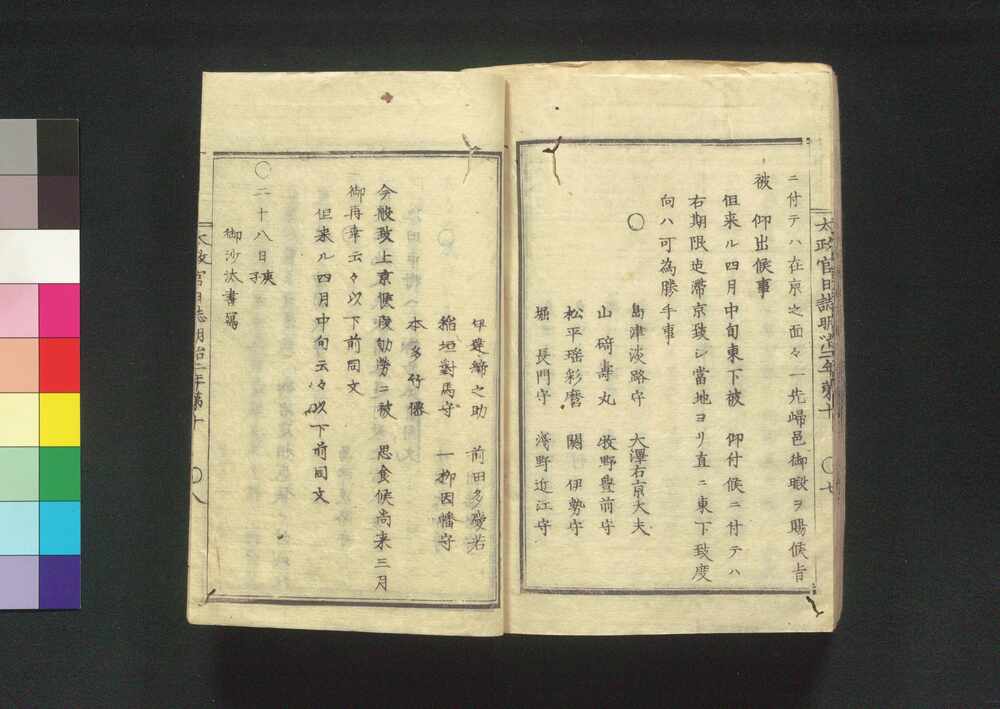 太政官日誌明治二年第十 〇七
ニ付テハ在京之面々一先帰邑御暇ヲ賜候旨
被 仰出候事
但来ル四月中旬東下被 仰付候ニ付テハ
右期限迄滞京致シ當地ヨリ直ニ東下致度
向ハ可為勝手事
〇
島津淡路守 大澤右京大夫
山﨑壽丸 牧野豊前守
松平瑶彩麿 關伊勢守
堀長門守 淺野近江守
伊達 之助 前田多慶若
稲垣對馬守 一柳因幡守
本多竹
今般致上京候段勤勞ニ被 思食候尚来三月
御再幸云々以下前同文
但来ル四月中旬云々以下前同文
〇二十八日庚子
御沙汰書寫
太政官日誌明治二年第十 〇八